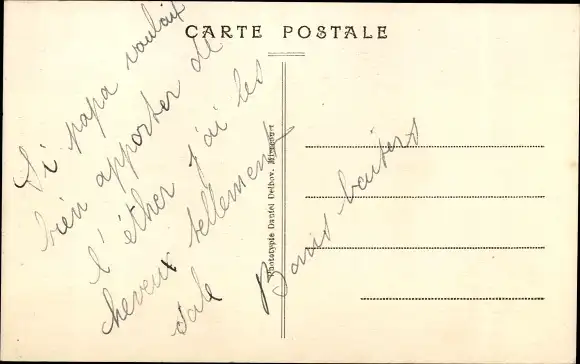 CARTE POSTALE
Si papa voulait
bien apporter de
l'éther j'ai les
cheveux tellement
sale
Bons baisers
Phototypie Daniel Delboy, Mirecourt